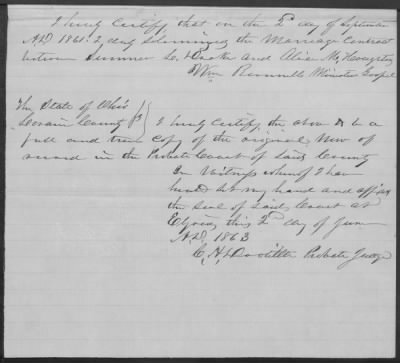 I hereby Certify that on the 2d day of September
A.D. 1861 I duly Solemnized the Marriage Contract
between Sumner and Alice M.
Wm Minister Gospel
The State of Ohio
Lorain County } SS I hereby Certify the above to be a
full and true Copy of the original Now of
record in the Probate Court of Said County
In Witness whereof I have
hereto set my hand and affixed
the Seal of Said Court at
Elyria this 2d day of June
A.D. 1863
C. H. Doolittle Probate Judge